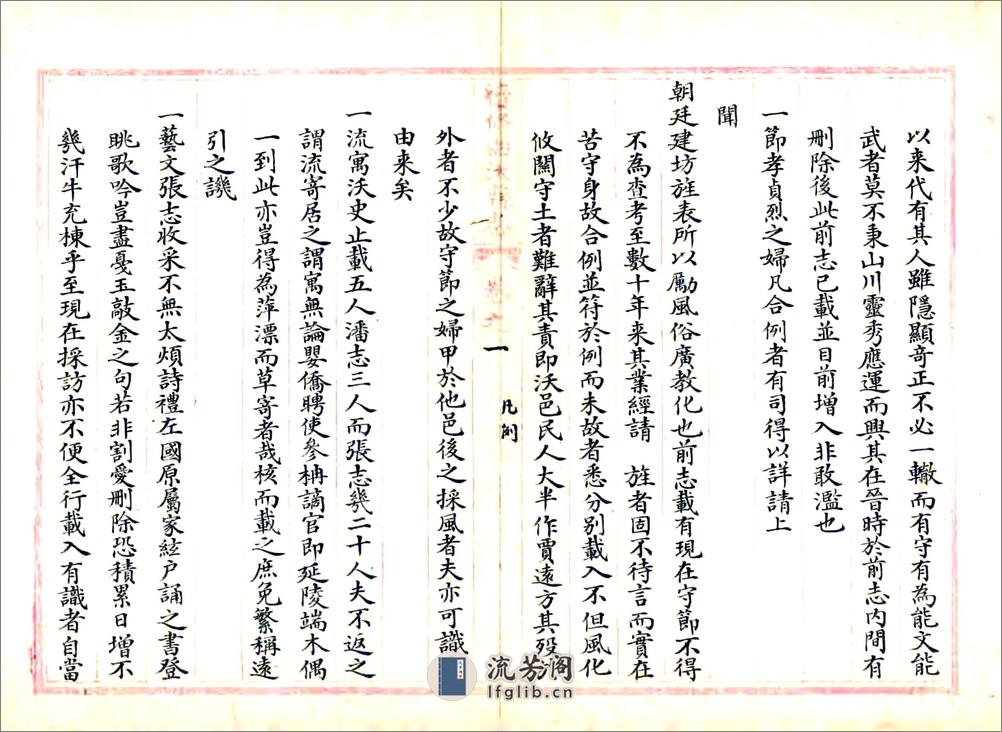 以来代有其人雖隱顯奇正不必一轍而有守有為能文能
武者莫不秉山川靈秀應運而興其在晉時於前志内間有
删除後此前志已載並目前增入非敢濫也
一節孝貞烈之婦凡合例者有司得以詳請上
聞
朝廷建坊旌表所以勵風俗廣教化也前志載有現在守節不得
不為查考至數十年来其業經請　旌者固不待言而實在
苦守身故合例並符於例而未故者悉分別載入不但風化
攸關守土者難辭其責即沃邑民人大半作賈遠方其殁
卷之一
凡例
外者不少故守節之婦甲於他邑後之採風者夫亦可識
由来矣
一流寓沃史止載五人潘志三人而張志幾二十人夫不返之
謂流寄居之謂寓無論嬰僑聘使參枏謫官即延陵端木偶
一到此亦豈得為萍漂而草寄者哉核而載之庶免繁稱遠
引之譏
一藝文張志收采不無太煩詩禮左國原屬家絃户誦之書登
眺歌吟豈盡戛玉敲金之句若非割愛删除恐積累日增不
幾汗牛充棟乎至現在採訪亦不便全行載入有識者自當
流芳阁
lfglib.cn